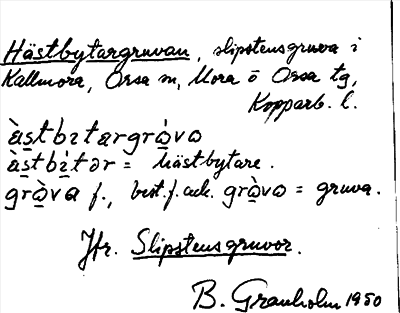 Hästbytargruvan, slipstensgruva i
Kallmora, Orsa sn, Mora o Orsa tg,
Kopparb. l.
àstbɪtargràvo
àstbɪ̀tər = hästbytare.
gràva f., best. f. ack. gràvo = gruva.
Jfr. Slipstensgruvor.
B. Granholm 1950